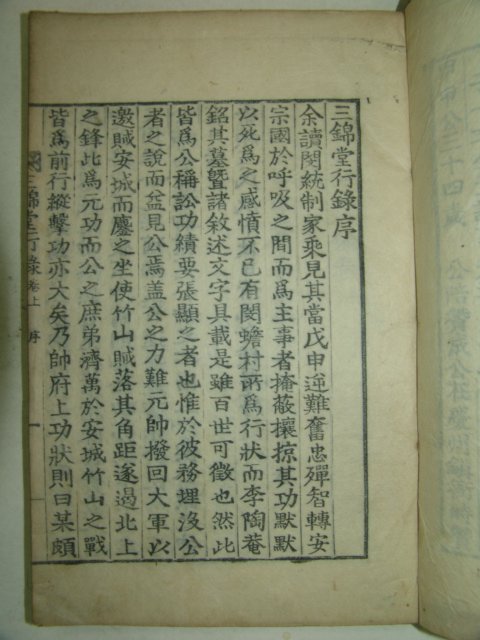 三錦堂行錄序
余讀閔統制家乘見其當戊申逆難奮忠殫智轉安
宗國於呼吸之間而爲主事者掩蔽攘掠其功默默
以死爲之感憤不已有閔蟾村所爲行狀而李陶菴
銘其墓曁諸敘述文字具載是雖百世可徵也然此
皆爲公稱訟功績要張顯之者也惟於彼務埋沒公
者之說而益見公焉盖公之力難元帥撥回大軍以
邀賊安城而鏖之坐使竹山賊落其角距遂遏北上
之鋒此爲元功而公之庶弟濟萬於安城竹山之戰
皆爲前行縱擊功亦大矣乃帥府上功狀則曰某頗
三錦堂行錄 卷上 序